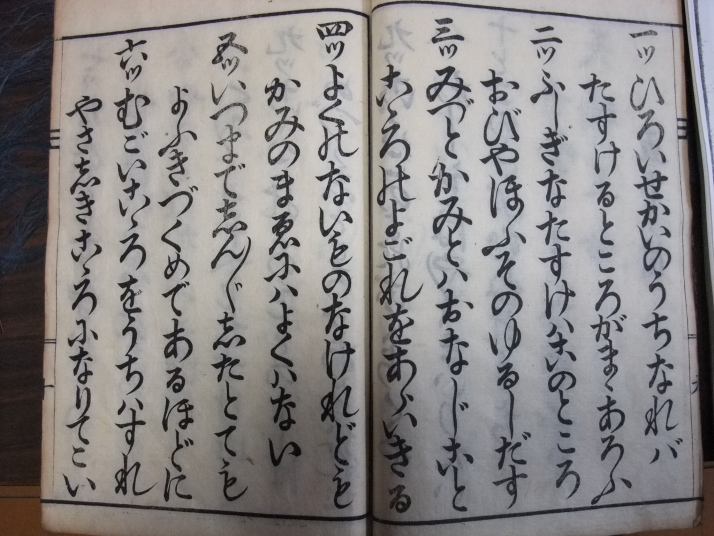 一ッひろいせかいのうちなれバ
たすけるところがまゝあろふ
二ッふしぎなたすけハこのところ
おびやほふそのゆるしだす
三ッみづとかみとハおなじこと
こゝろのよごれをあらいきる
四ッよくのないものなけれども
かみのまゑにハよくハない
五ッいつまでしん／″＼したとても
よふきづくめであるほどに
六ッむごいこゝろをうちハすれ
やさしきこゝろになりてこい